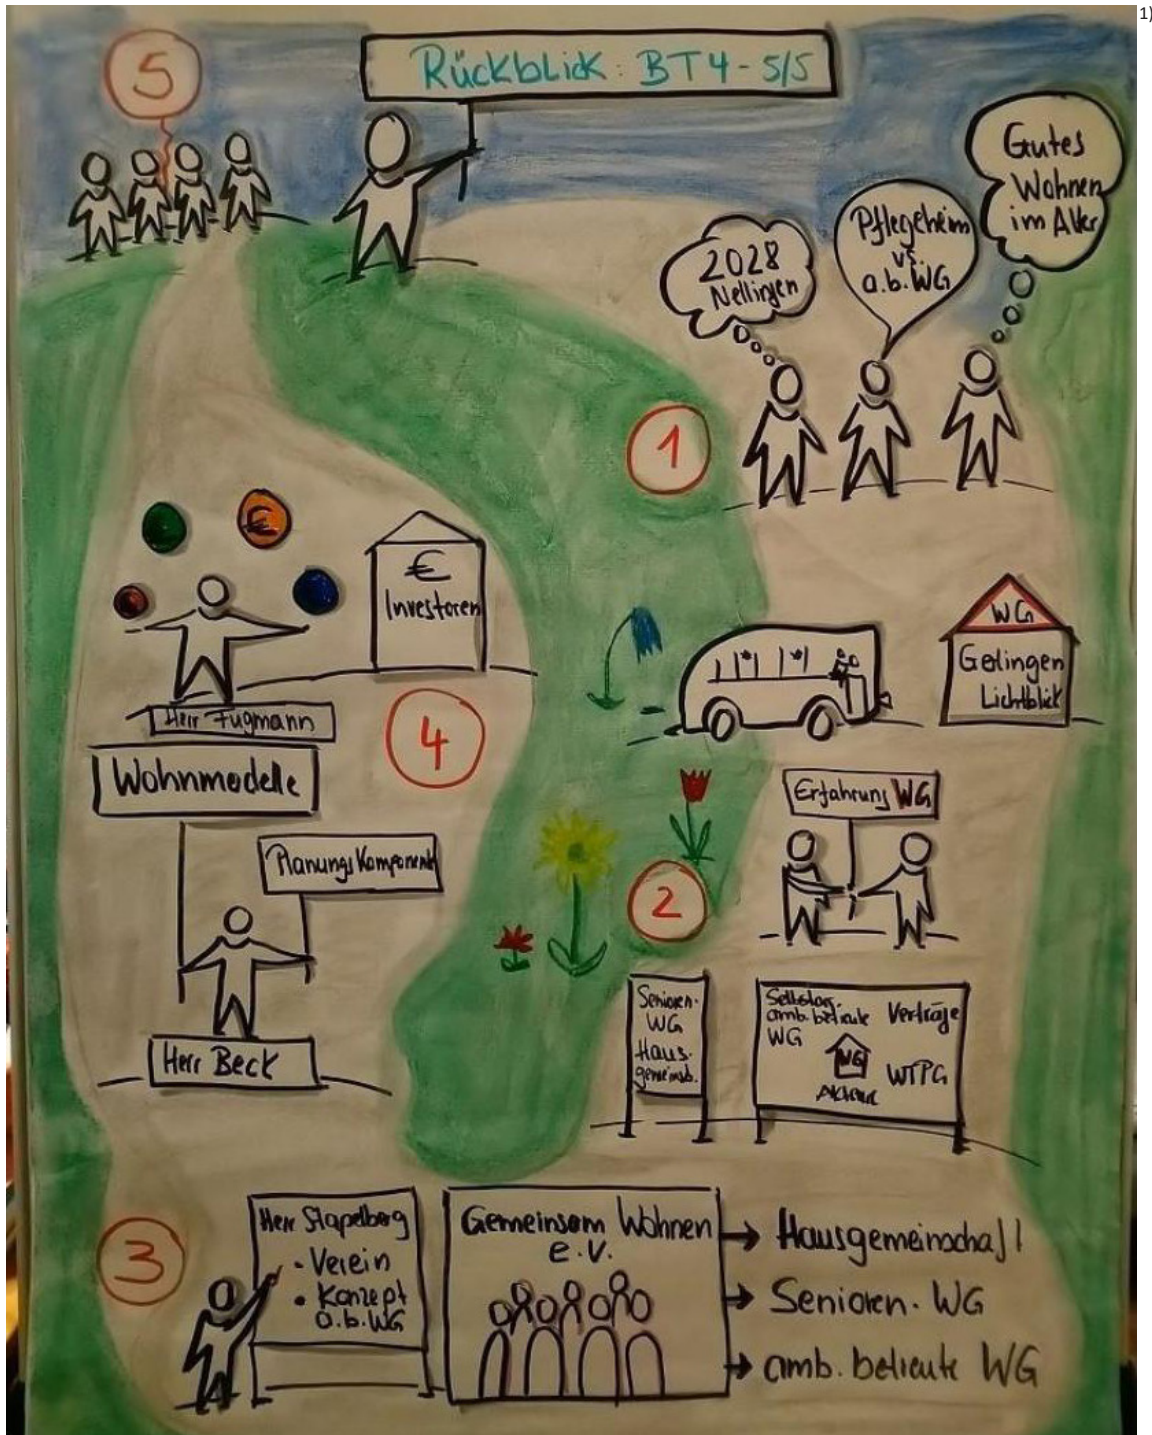 1)
5
Rückblick: BT4-5/5
Gutes
Wohnen
im Alter
Pflegeheim
vs.
a.b.WG
2028
Nellingen
1
€
€
Investoren
WG
Gerlingen
Lichtblick
Herr Fugmann
4
Wohnmodelle
Erfahrung WG
Planungskomponente
2
Herr Beck
Senioren-
WG
Haus-
gemeinsch.
Selbstorg.
amb. betreute
WG
Verträge
WG
WTPG
3
Herr Stapelberg
• Verein
• Konzept
a.b.WG
Gemeinsam Wohnen
e.V.
→ Hausgemeinschaft
→ Senioren-WG
→ amb. betreute WG